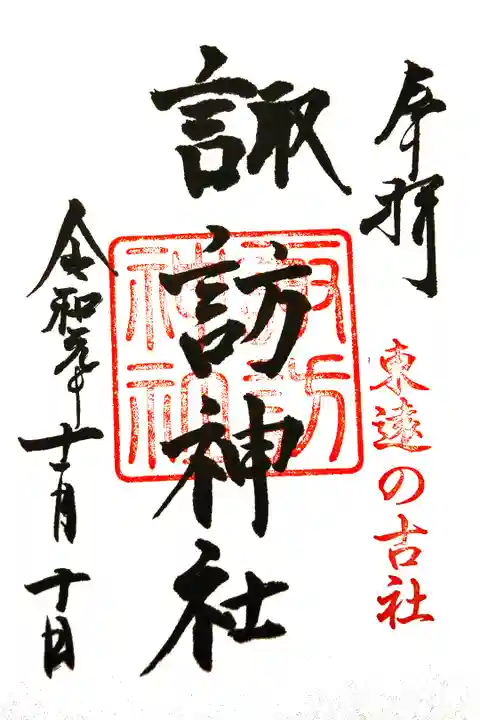 奉拝
東遠の古社
諏訪神社
諏訪神社
令和元年十一月十日